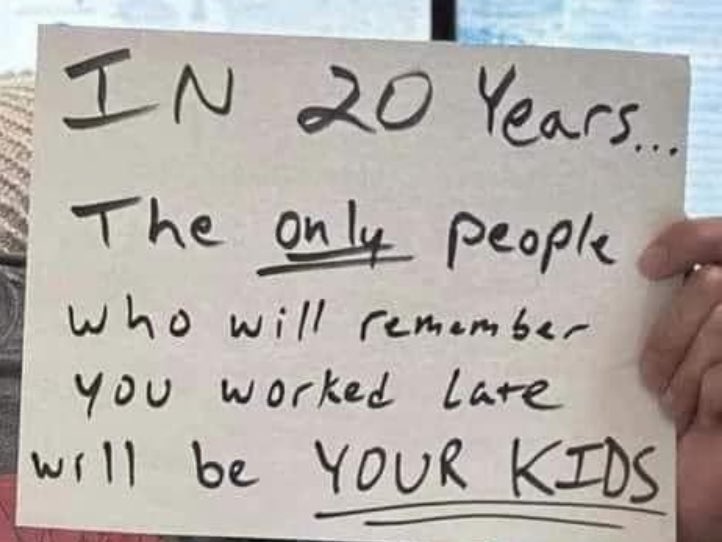 IN 20 Years...
The only people
who will remember
you worked late
will be YOUR KIDS